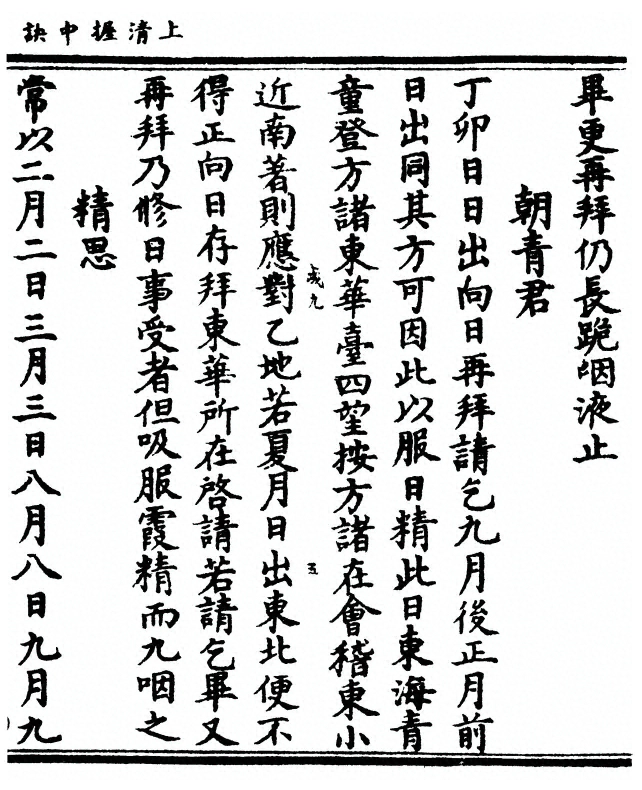 上清握中訣
畢更再拜仍長跪咽液止
朝青君
丁卯日日出向日再拜請乞九月後正月前
日出同其方可因此以服日精此日東海青
童登方諸東華臺四望按方諸在會稽東小
近南著則應對乙地若夏月日出東北便不
或九
五
得正向日存拜東華所在啓請若請乞畢又
再拜乃修日事受者但吸服霞精而九咽之
精思
常以二月二日三月三日八月八日九月九